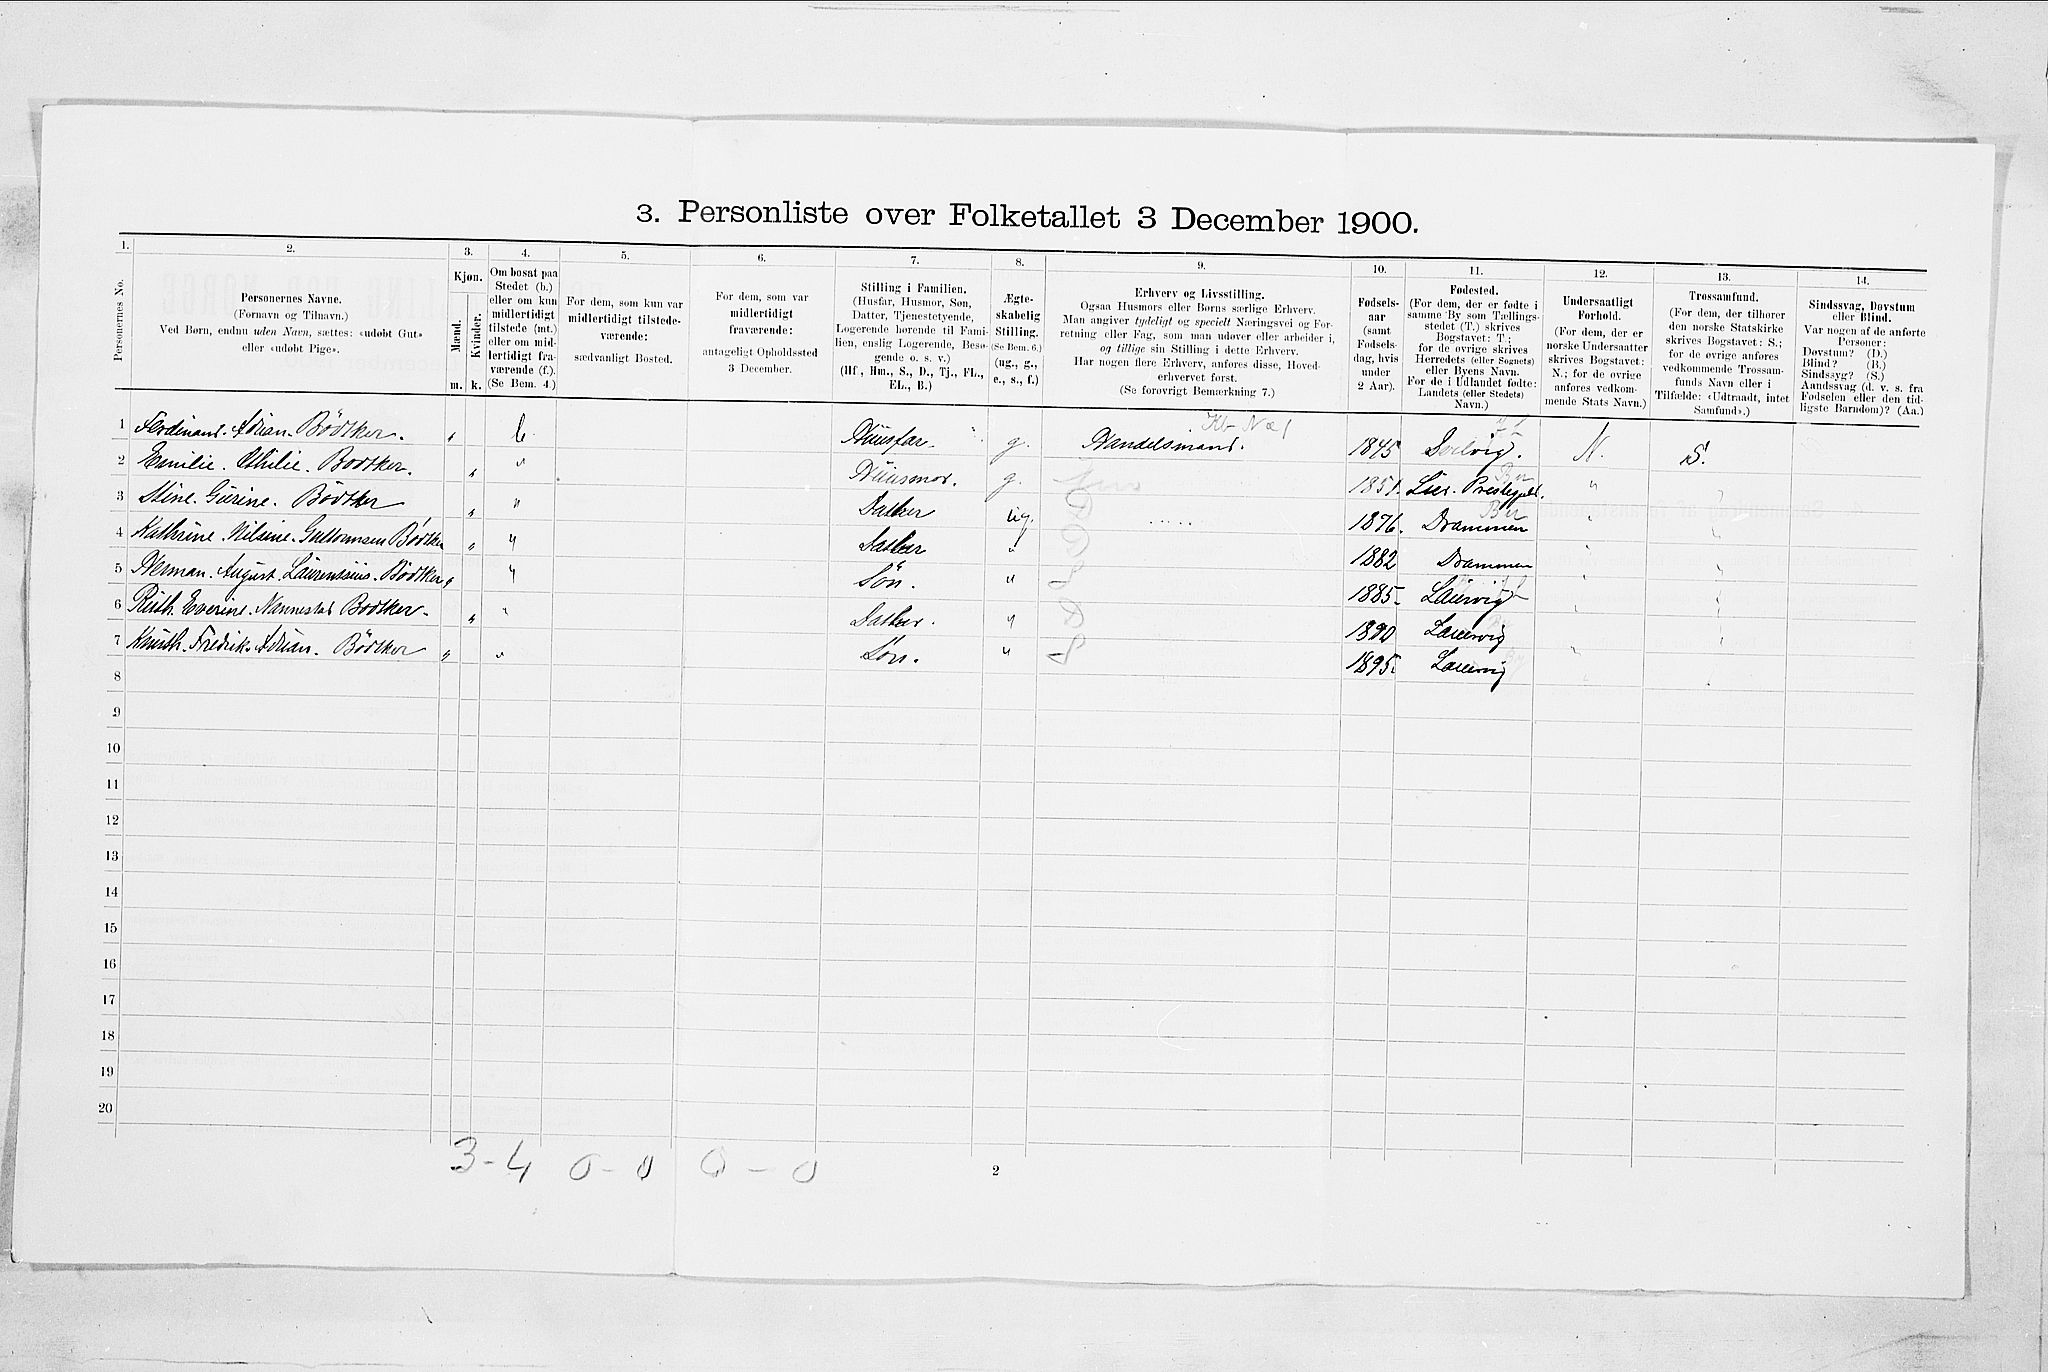 3. Personliste over Folketallet 3 December 1900.
1. 2. 3. 4. 5. 6. 7. 8. 9. 10. 11. 12. 13. 14.
Personernes No.
Personernes Navne.
(Fornavn og Tilnavn.)
Ved Børn, endnu uden Navn, sættes: «udøbt Gut»
eller «udøbt Pige».
Kjøn.
Mænd. Kvinder.
m. k.
Om bosat paa
Stedet (b.)
eller om kun
midlertidigt
tilstede (mt.)
eller om mid-
lertidigt fra-
værende (f.).
(Se Bem. 4.)
For dem, som kun var
midlertidigt tilstede-
værende:
sædvanligt Bosted.
For dem, som var
midlertidigt
fraværende:
antageligt Opholdssted
3 December.
Stilling i Familien.
(Husfar, Husmor, Søn,
Datter, Tjenestetyende,
Logerende hørende til Fami-
lien, enslig Logerende, Besø-
gende o. s. v.)
(Hf., Hm., S., D., Tj., FL.,
EL., B.)
Ægte-
skabelig
Stilling.
(Se Bem. 6.)
(ug., g.,
e., s., f.)
Erhverv og Livsstilling.
Ogsaa Husmors eller Børns særlige Erhverv.
Man angiver tydeligt og specielt Næringsvei og For-
retning eller Fag, som man udøver eller arbeider i,
og tillige sin Stilling i dette Erhverv.
Har nogen flere Erhverv, anføres disse, Hoved-
erhvervet først.
(Se forøvrigt Bemærkning 7.)
Fødsels-
aar
(samt
Fødsels-
dag, hvis
under
2 Aar).
Fødested.
(For dem, der er fødte i
samme By som Tællings-
stedet (T.) skrives
Bogstavet: T.;
for de øvrige skrives
Herredets (eller Sognets)
eller Byens Navn.
For de i Udlandet fødte:
Landets (eller Stedets)
Navn.)
Undersaatligt
Forhold.
(For dem, der er
norske Undersaatter
skrives Bogstavet:
N.; for de øvrige
anføres vedkom-
mende Stats Navn.)
Trossamfund.
(For dem, der tilhører
den norske Statskirke
skrives Bogstavet: S.;
for de øvrige anføres
vedkommende Trossam-
funds Navn eller i
Tilfælde: «Udtraadt, intet
Samfund».)
Sindssvag, Døvstum
eller Blind.
Var nogen af de anførte
Personer:
Døvstum? (D.)
Blind? (B.)
Sindssyg? (S.)
Aandssvag (d. v. s. fra
Fødselen eller den tid-
ligste Barndom)? (Aa.)
1 Ferdinand. Adrian. Bödtker. " b. Huusfar. g. Handelsmand. 1845 N. S.
2 Emilie. Othilie. Bödtker. " " Huusmor. g. 1851. Lier. Prestegjeld. " "
3 Stine. Gurine. Bödtker " " Datter ug. 1876. Drammen " "
4 Kathrine. Nilsine. Guttormsen Bödtker " " Datter " 1882 Drammen " "
5 Herman. August. Laurentsius. Bödtker " " Sön. " 1885. Laurvig " "
6 Ruth. Everine. Nannestad Bödtker. " " Datter. " 1890 Laurvig " "
7 Knuth. Fredrik. Adrian. Bödtker " " Sön. " 1895. Laurvig " "
8
9
10
11
12
13
14
15
16
17
18
19
20
3-4 0-0 0-0
2